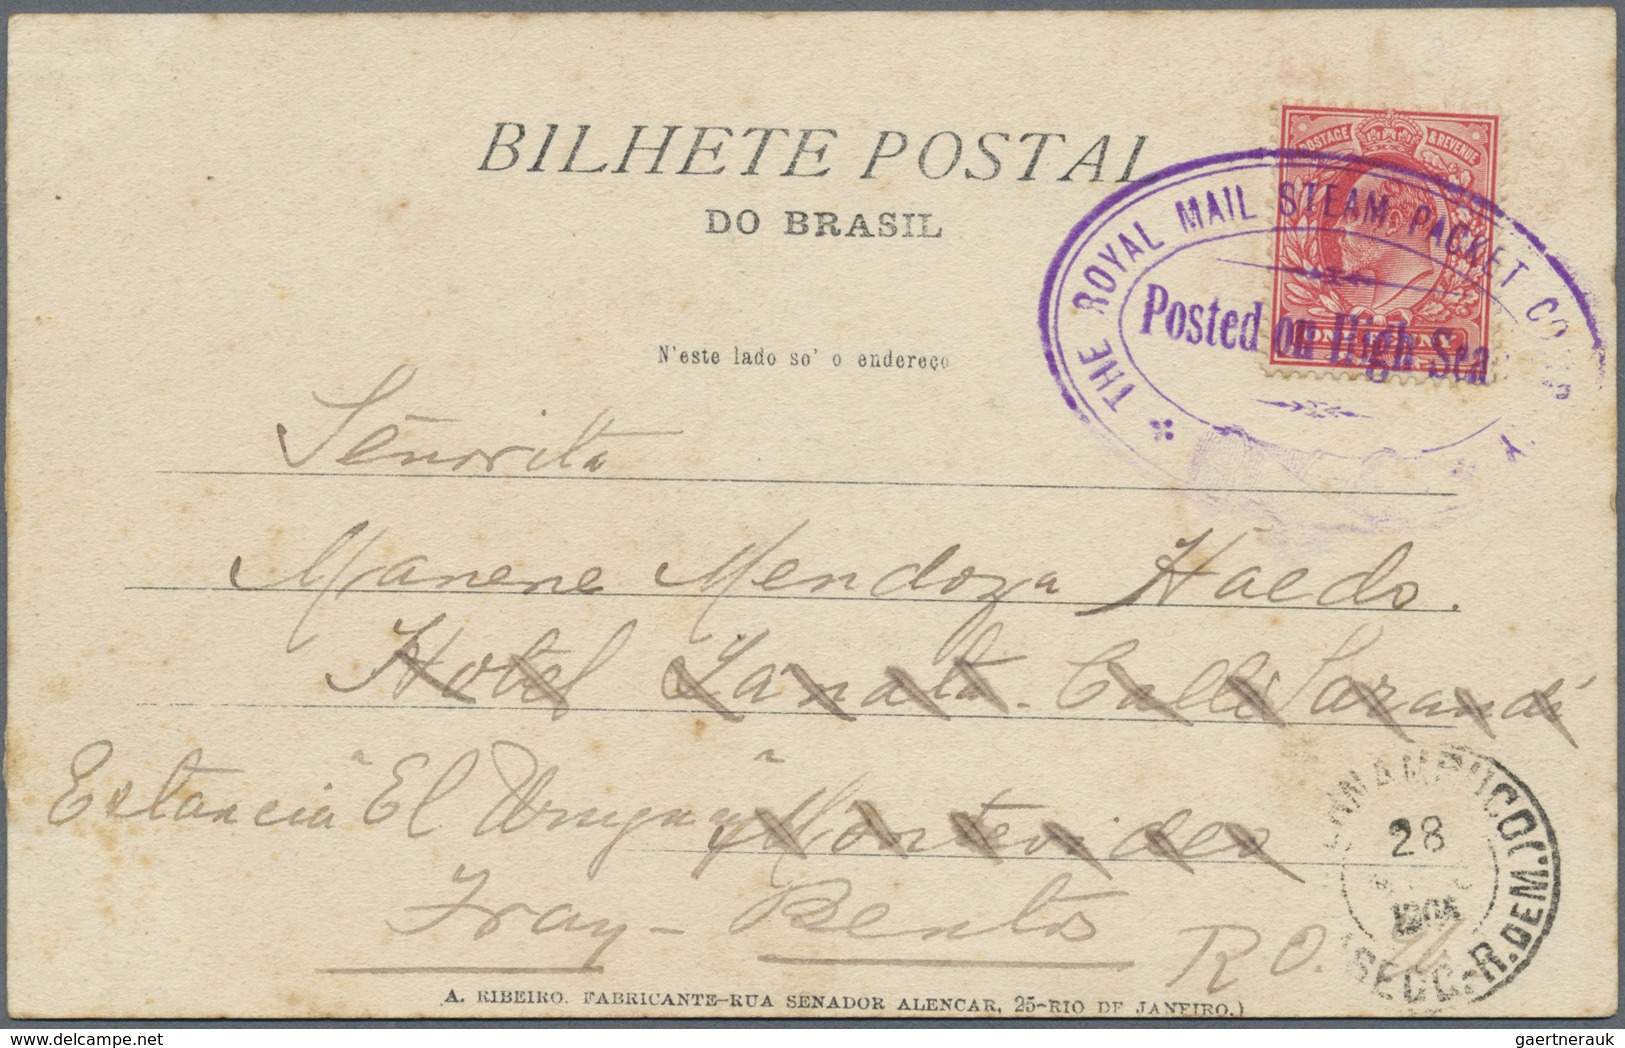 BILHETE POSTAL
DO BRASIL
N'este lado so' o endereço
POSTAGE & REVENUE
ONE PENNY
THE ROYAL MAIL STEAM PACKET
Posted on High Sea
Señorita
Manene Mendoza Haedo.
Hotel Lanata - Calle Sarandí
Estancia "El Uruguay" Montevideo
Fray - Bentos
R. O.
28
SECC.-R.DEM.
A. RIBEIRO. FABRICANTE-RUA SENADOR ALENCAR, 25-RIO DE JANEIRO.)
gaertnerauk